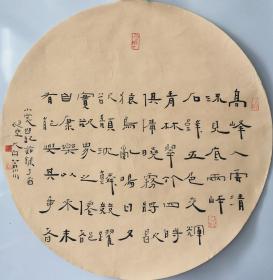 高峰入雲清
流見底兩岸
石壁五色交輝
青林翠竹四時
俱備曉霧將歇
猿鳥亂鳴日夕
欲頹沉鱗競躍
實欲界之僊都
自康樂以來未
有能與其奇者